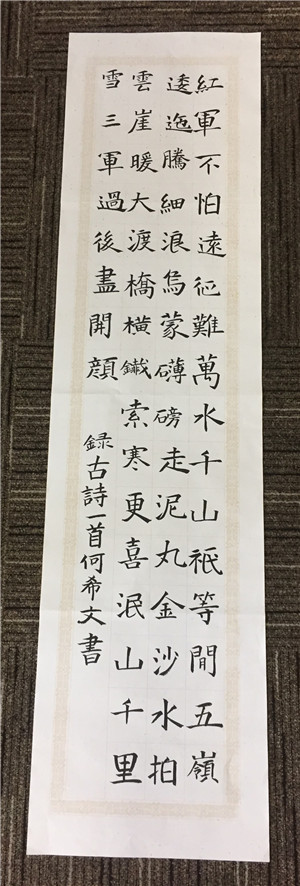 紅軍不怕遠征難萬水千山祇等間五嶺
逶迤騰細浪烏蒙礴磅走泥丸金沙水拍
雲崖暖大渡橋橫鐵索寒更喜泯山千里
雪三軍過後盡開顔
録古詩一首何希文書